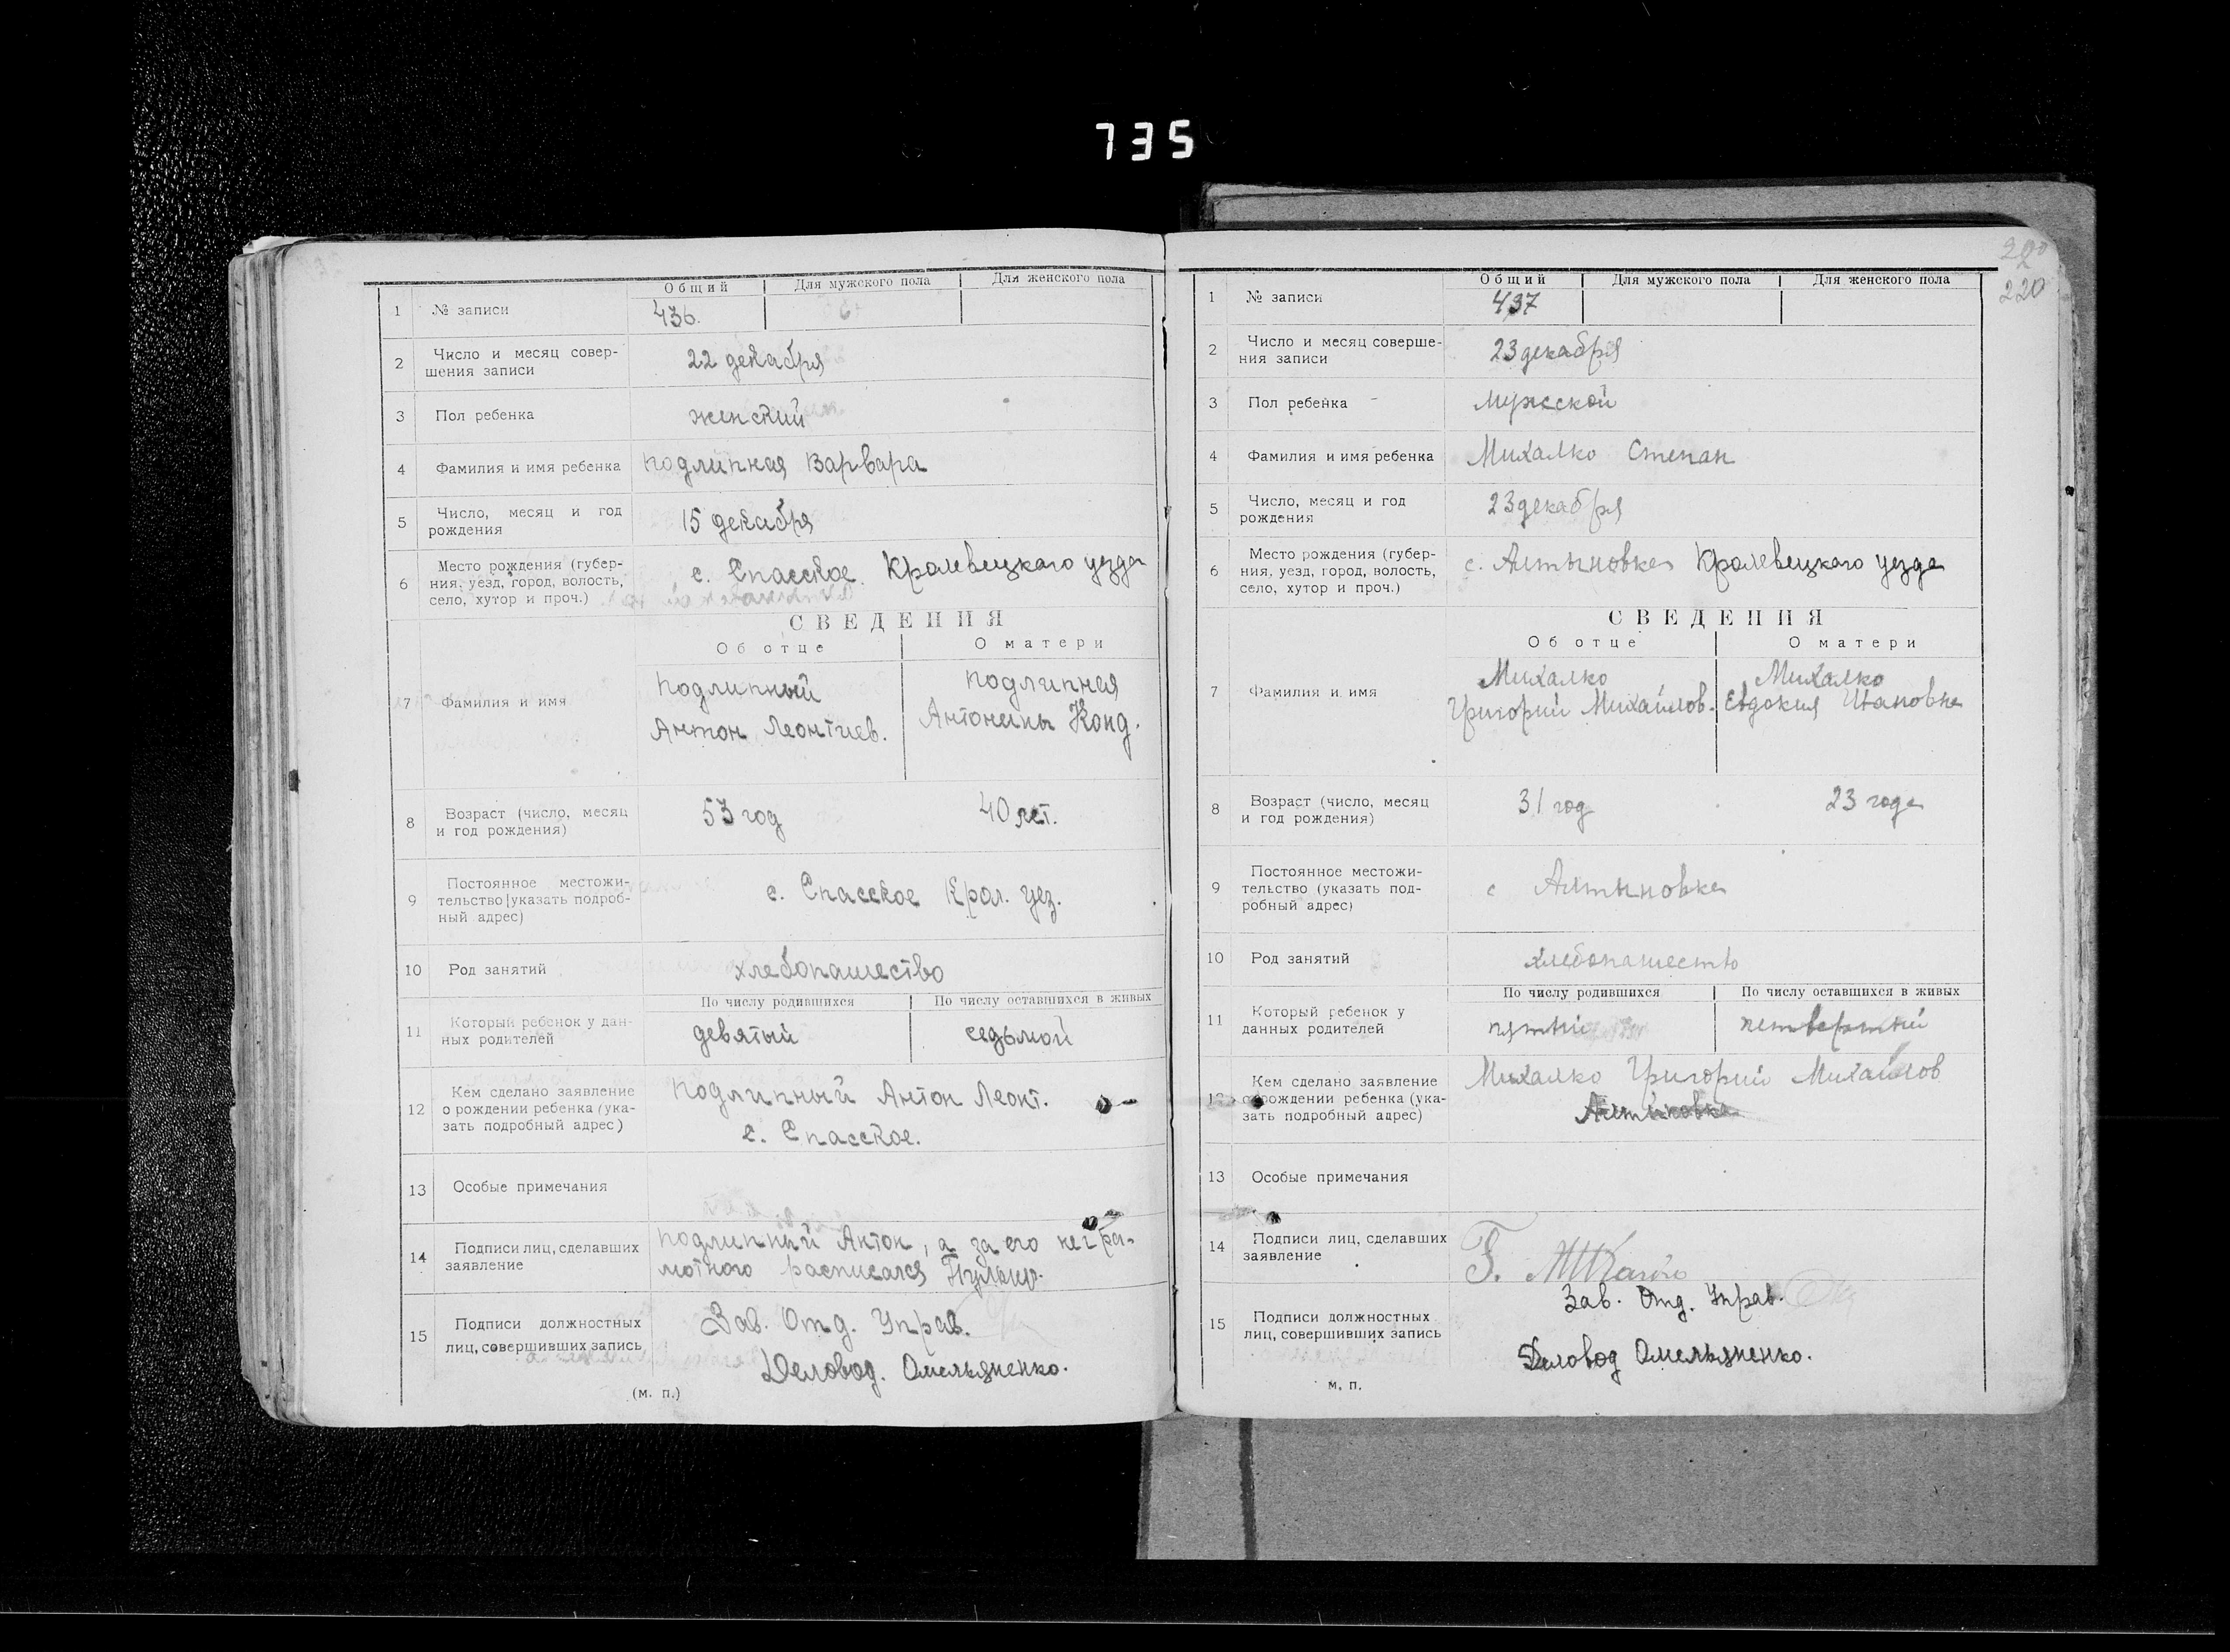 735
Общий Для мужского пола Для женского пола
1 № записи 436.
2 Число и месяц совер-
шения записи 22 декабря
3 Пол ребенка женский
4 Фамилия и имя ребенка подлипная Варвара
5 Число, месяц и год
рождения 15 декабря
6 Место рождения (губер-
ния, уезд, город, волость,
село, хутор и проч.) с. Спасское. Кролевецкаго уезда
СВЕДЕНИЯ
Об отце О матери
7 Фамилия и имя
подлипный подлипная
Антон Леонтиев. Антонины Конд.
8 Возраст (число, месяц
и год рождения) 53 год 40 лет.
9 Постоянное местожи-
тельство (указать подроб-
ный адрес) с. Спасское Крол. уез.
10 Род занятий хлебопашество
По числу родившихся По числу оставшихся в живых
11 Который ребенок у дан-
ных родителей девятый седьмой
12 Кем сделано заявление
о рождении ребенка (ука-
зать подробный адрес) подлипный Антон Леонт.
с. Спасское.
13 Особые примечания
14 Подписи лиц, сделавших
заявление подлипный Антон, а за его негра-
мотного расписался
15 Подписи должностных
лиц, совершивших запись Зав. Отд. Управ.
Деловод. Омельяненко.
(м. п.)
220
220
Общий Для мужского пола Для женского пола
1 № записи 437
2 Число и месяц соверше-
ния записи 23 декабря
3 Пол ребенка мужеской
4 Фамилия и имя ребенка Михалко Степан
5 Число, месяц и год
рождения 23 декабря
6 Место рождения (губер-
ния, уезд, город, волость,
село, хутор и проч.) с. Алтыновке Кролевецкаго уезда
СВЕДЕНИЯ
Об отце О матери
7 Фамилия и имя
Михалко Михалко
Григорий Михайлов. Евдокия Ивановна
8 Возраст (число, месяц
и год рождения) 31 год 23 года
9 Постоянное местожи-
тельство (указать под-
робный адрес) с Алтыновка
10 Род занятий хлебопашество
По числу родившихся По числу оставшихся в живых
11 Который ребенок у
данных родителей пятый четвертый
12 Кем сделано заявление
о рождении ребенка (ука-
зать подробный адрес) Михалко Григорий Михайлов
Алтыновка
13 Особые примечания
14 Подписи лиц, сделавших
заявление
15 Подписи должностных
лиц, совершивших запись Зав. Отд. Управ.
Деловод Омельяненко.
м. п.